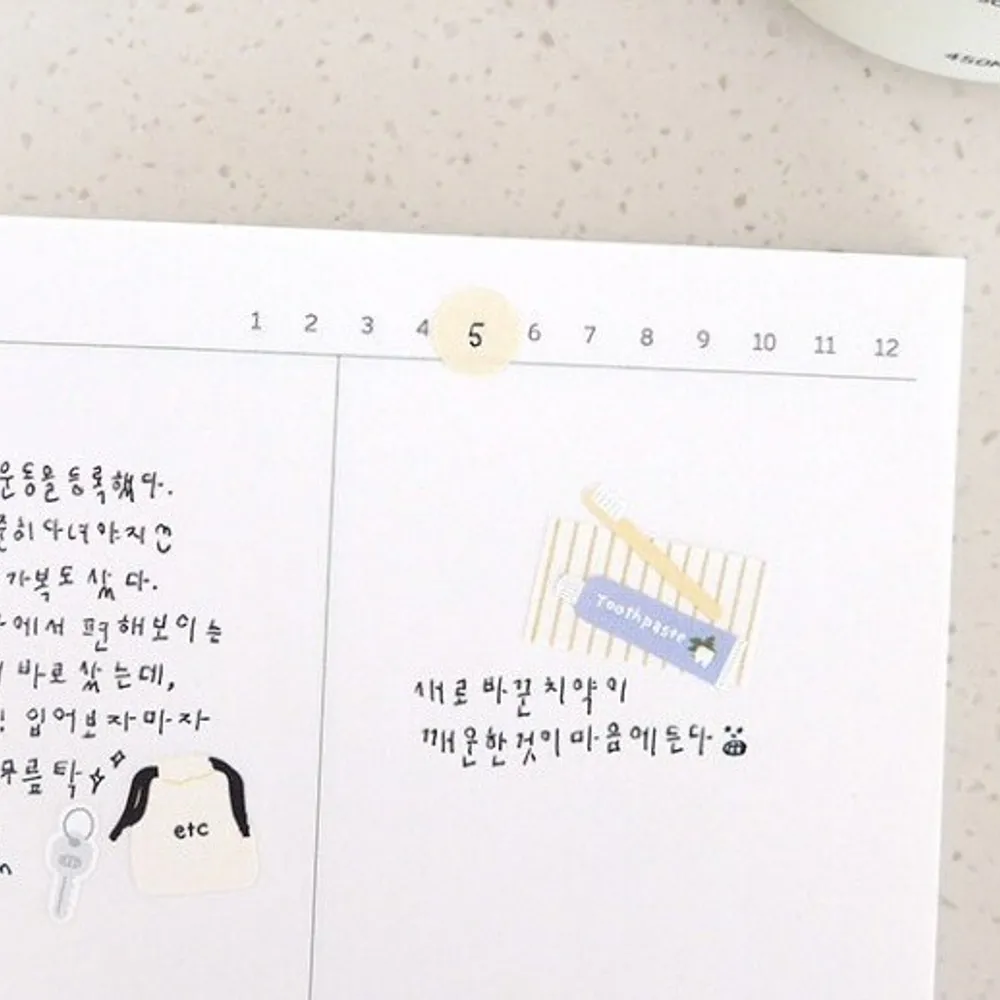 450M
1 2 3 4 5 6 7 8 9 10 11 12
운동을 등록했다.
다녀야지
가복도 샀다.
에서 편해보이는
바로 샀는데,
입어보자마자
무릎탁
etc
Toothpaste
새로바꾼치약이
개운한것이마음에든다